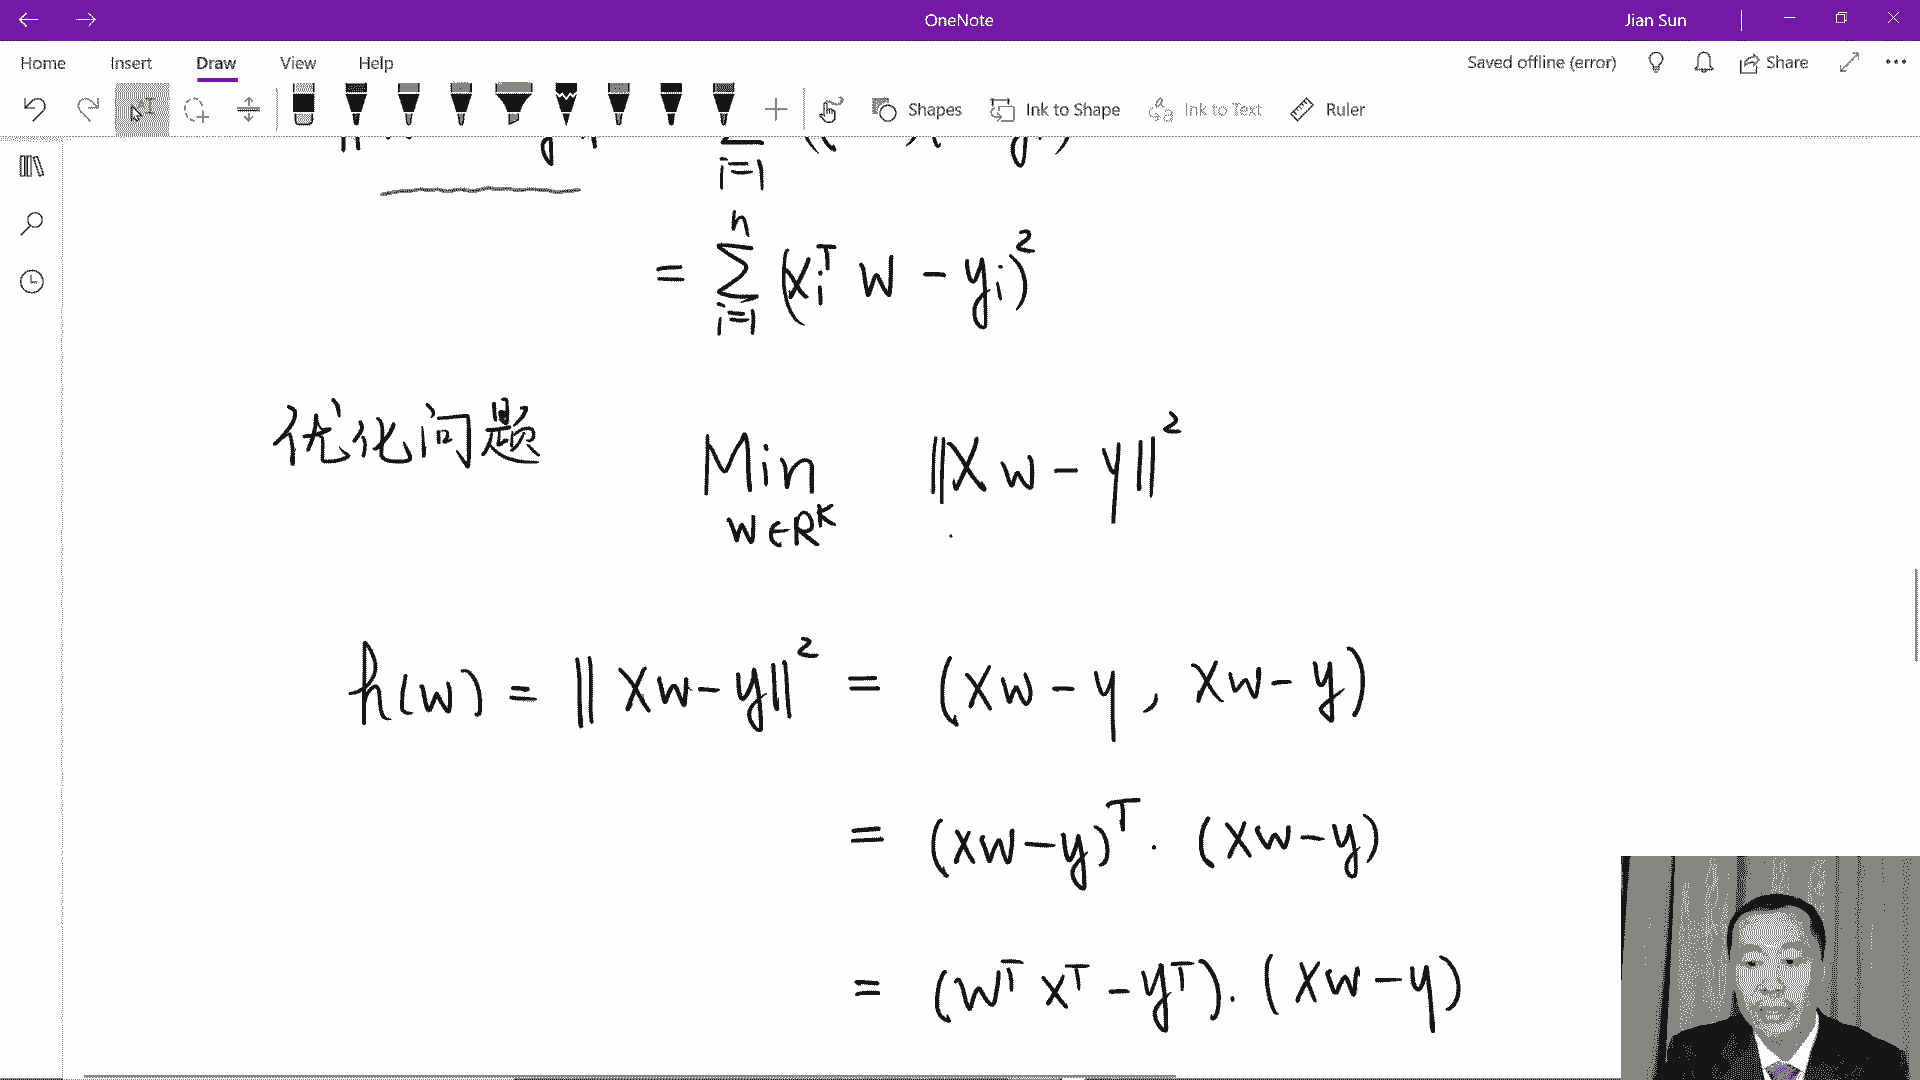 OneNote
Jian Sun
Home Insert Draw View Help
Saved offline (error) Share
Shapes Ink to Shape Ink to Text Ruler
i=1
= ∑_{i=1}^{n} (x_i^T w - y_i)^2
优化问题 Min_{w∈R^K} ‖Xw - y‖^2
h(w) = ‖Xw - y‖^2 = (Xw - y, Xw - y)
= (Xw - y)^T · (Xw - y)
= (w^T X^T - y^T) · (Xw - y)